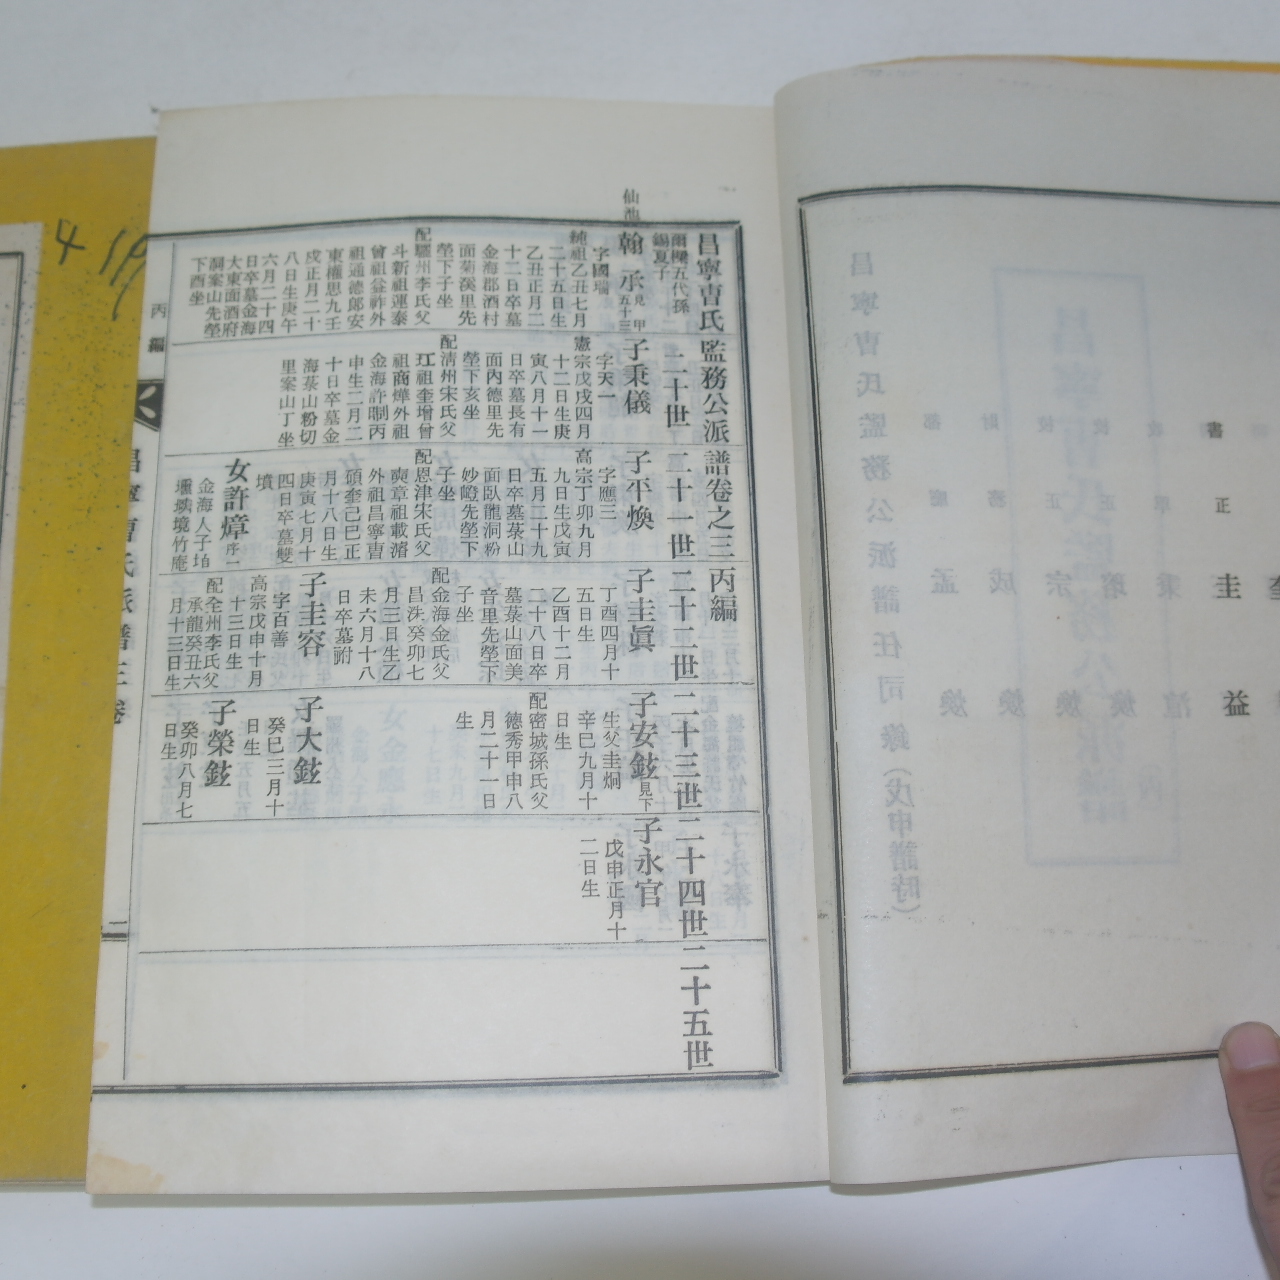 昌寧曺氏監務公派譜卷之三 丙編
二十世
二十一世
二十二世
二十三世
二十四世
二十五世
仙池
翰承
五代孫
錫夏子
字國瑞
純祖乙丑七月
二十五日生
乙丑正月二
十二日卒墓
金海郡酒村
面菊溪里先
塋下子坐
配驪州李氏父
斗新祖運泰
曾祖益祚外
祖通德郎安
東權思九壬
戌正月二十
八日生庚午
六月二十四
日卒墓金海
大東面酒府
洞案山先塋
下酉坐
子秉儀
字天一
憲宗戊戌四月
十二日生庚
寅八月十一
日卒墓長有
面內德里先
塋下亥坐
配淸州宋氏父
玒祖奎增曾
祖商燁外祖
金海許㓡丙
申生二月二
十日卒墓金
海菉山粉切
里案山丁坐
子平煥
字應三
高宗丁卯九月
九日生戊寅
五月二十九
日卒墓菉山
面臥龍洞粉
妙嶝先塋下
子坐
配恩津宋氏父
奭章祖載濬
外祖昌寧曺
碩奎己巳正
月十八日生
庚寅七月十
四日卒墓雙
墳
女許煒
金海人子
境竹庵
子圭眞
丁酉四月十
五日生
乙酉十二月
二十八日卒
墓菉山面美
音里先塋下
子坐
配金海金氏父
昌洙癸卯七
月三日生乙
未六月十八
日卒墓祔
子圭容
字百善
高宗戊申十月
十三日生
配全州李氏父
承龍癸丑六
月十三日生
子安鉉 見下
生父圭炯
辛巳九月十
日生
配密城孫氏父
德秀甲申八
月二十一日
生
子大鉉
癸巳三月十
日生
子榮鉉
癸卯八月七
日生
子永官
戊申正月十
二日生
丙編
昌寧曺氏派譜三卷
二
昌寧曺氏監務公派譜任司錄(戊申譜時)
書
正
圭
益